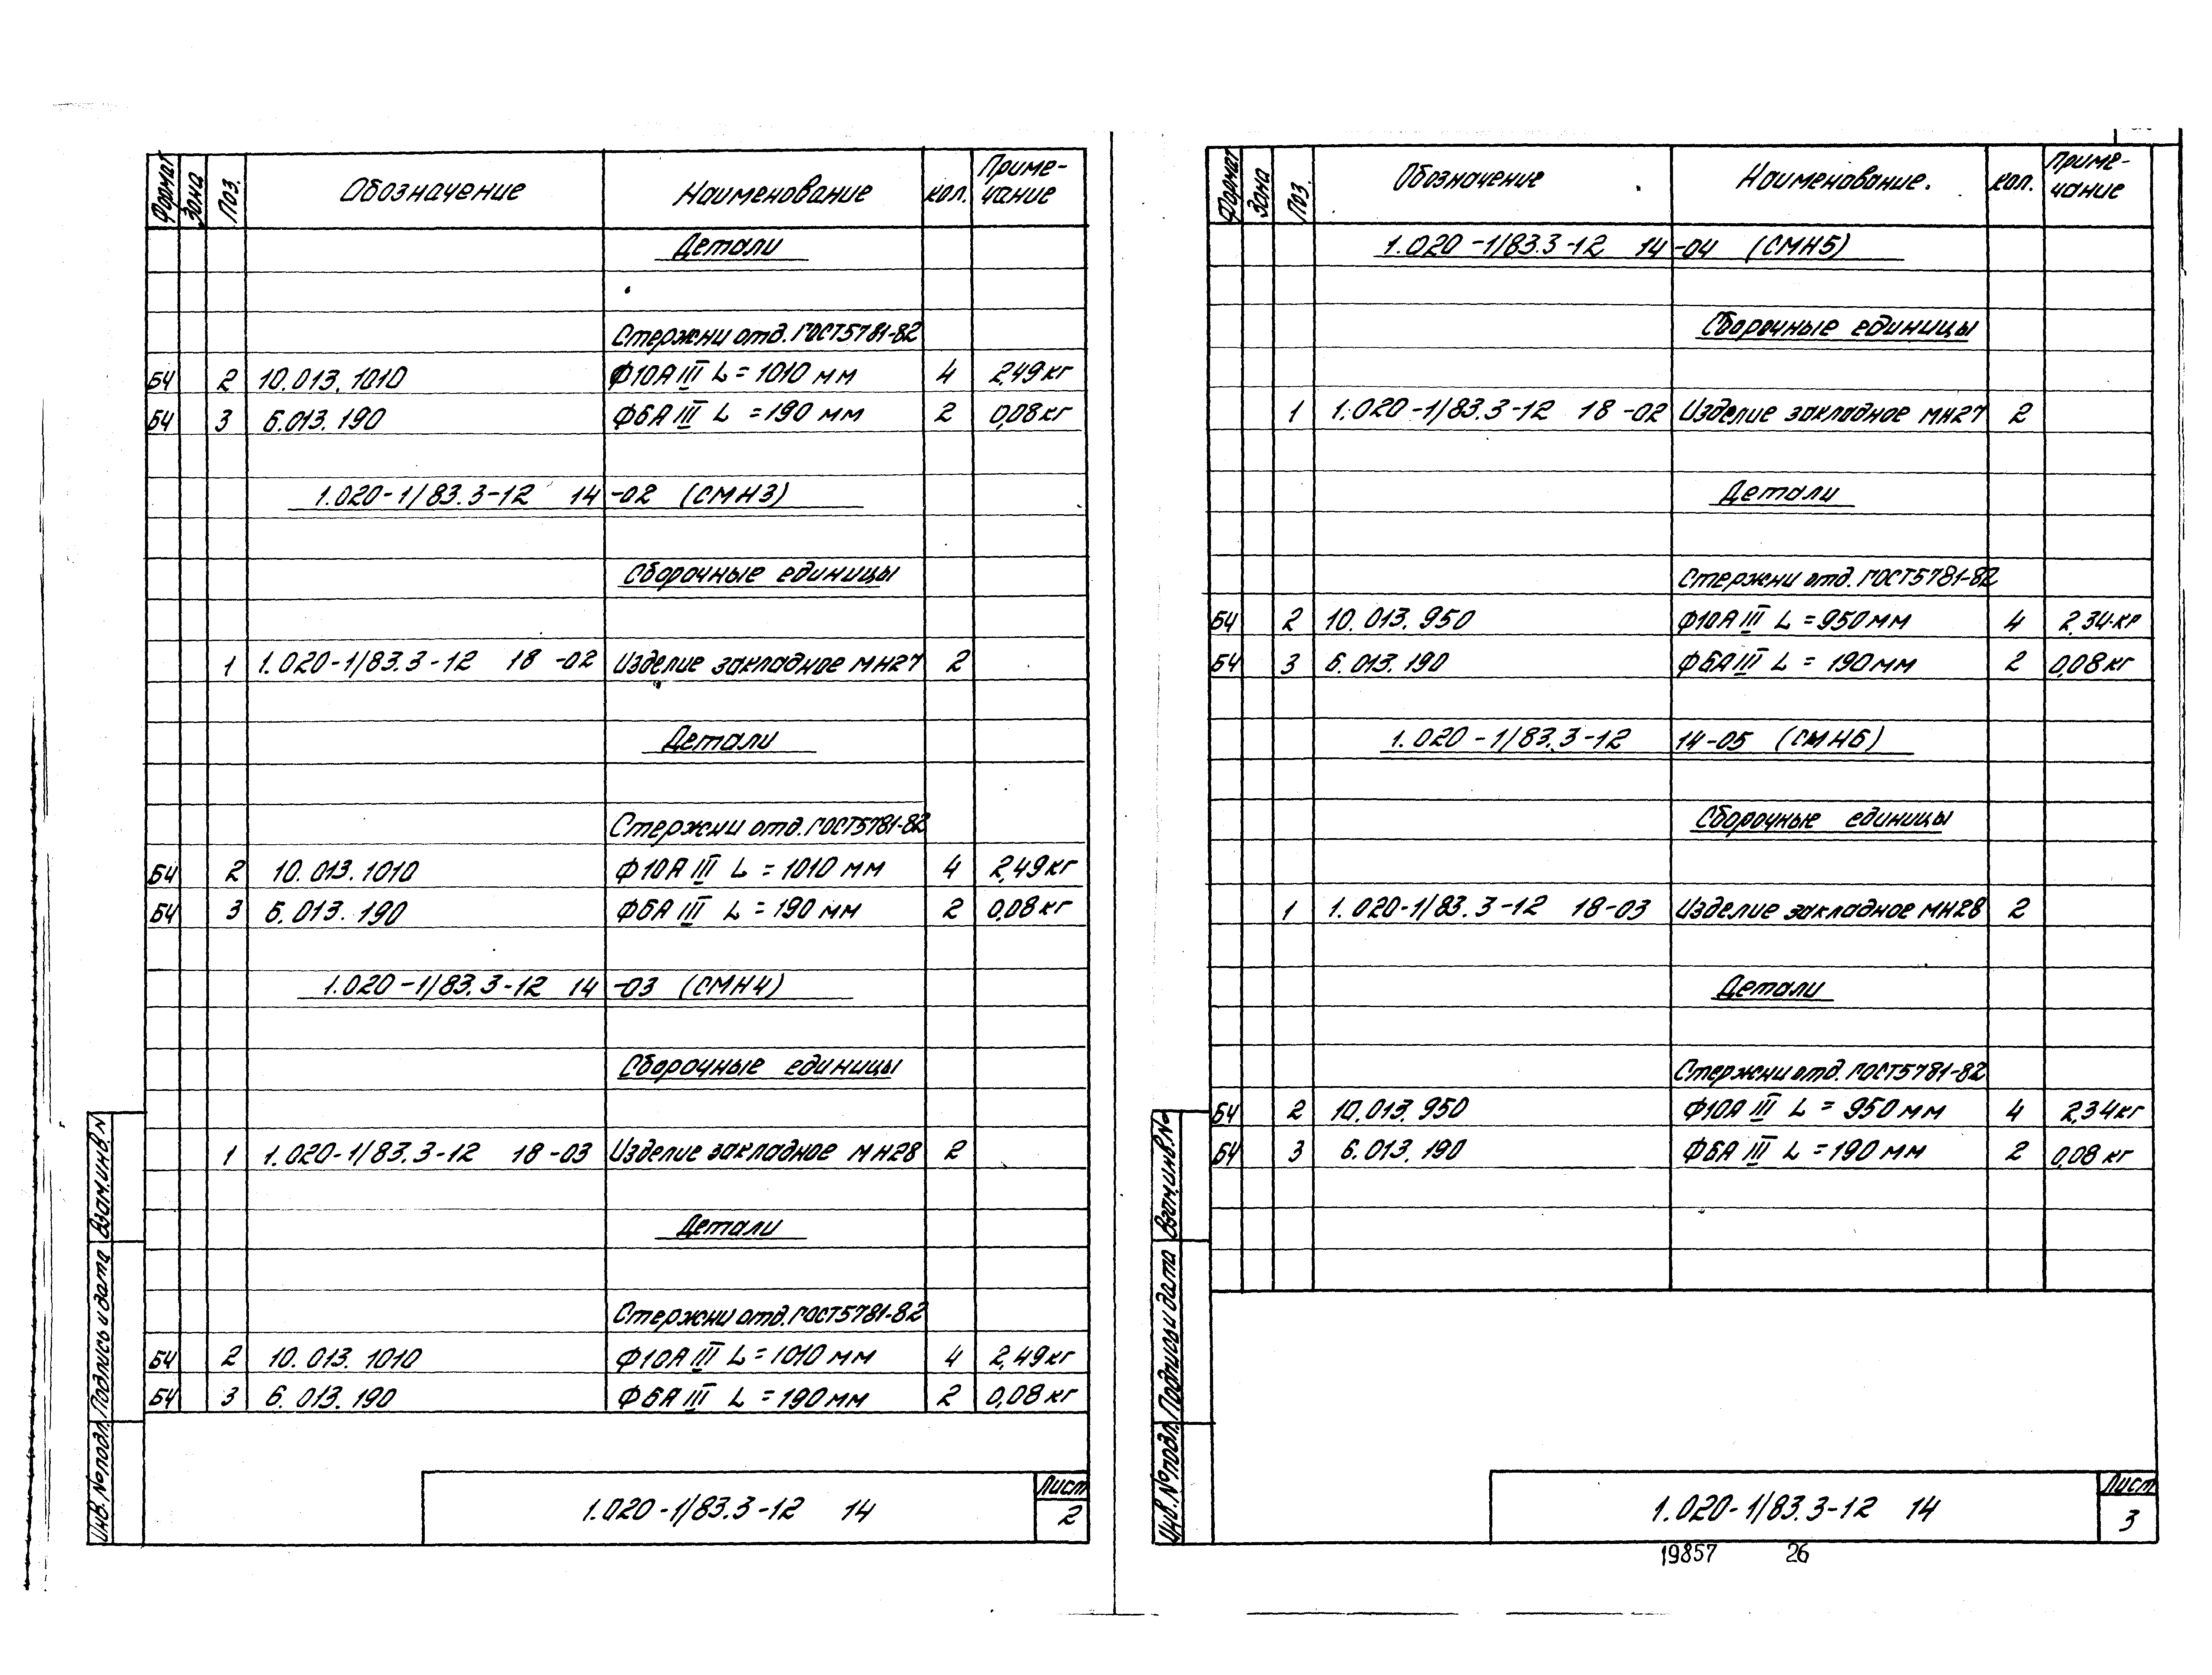 Формат Зона Поз. Обозначение Наименование кол. Приме-
чание
Детали
Стержни отд. ГОСТ5781-82
БЧ 2 10.013.1010 Ф10АIII L = 1010 мм 4 2,49 кг
БЧ 3 6.013.190 Ф6АIII L = 190 мм 2 0,08 кг
1.020-1/83.3-12 14 -02 (СМН3)
Сборочные единицы
1 1.020-1/83.3-12 18 -02 Изделие закладное МН27 2
Детали
Стержни отд. ГОСТ5781-82
БЧ 2 10.013.1010 Ф10АIII L = 1010 мм 4 2,49 кг
БЧ 3 6.013.190 Ф6АIII L = 190 мм 2 0,08 кг
1.020-1/83.3-12 14 -03 (СМН4)
Сборочные единицы
1 1.020-1/83.3-12 18-03 Изделие закладное МН28 2
Детали
Стержни отд. ГОСТ5781-82
БЧ 2 10.013.1010 Ф10АIII L = 1010 мм 4 2,49 кг
БЧ 3 6.013.190 Ф6АIII L = 190 мм 2 0,08 кг
Инв. № подл. Подпись и дата Взам.инв.N
1.020-1/83.3-12 14
Лист
2
Формат Зона Поз. Обозначение Наименование. кол. Приме-
чание
1.020-1/83.3-12 14 -04 (СМН5)
Сборочные единицы
1 1.020-1/83.3-12 18 -02 Изделие закладное МН27 2
Детали
Стержни отд. ГОСТ5781-82
БЧ 2 10.013.950 Ф10АIII L = 950 мм 4 2,34 кг
БЧ 3 6.013.190 Ф6АIII L = 190 мм 2 0,08 кг
1.020-1/83.3-12 14-05 (СМН6)
Сборочные единицы
1 1.020-1/83.3-12 18-03 Изделие закладное МН28 2
Детали
Стержни отд. ГОСТ5781-82
БЧ 2 10.013.950 Ф10АIII L = 950 мм 4 2,34 кг
БЧ 3 6.013.190 Ф6АIII L = 190 мм 2 0,08 кг
Инв. № подл. Подпись и дата Взам.инв.№
1.020-1/83.3-12 14
Лист
3
19857 26